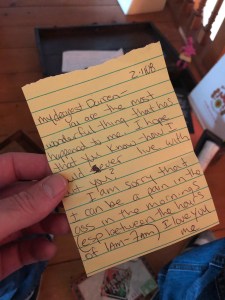 2-18-18
my dearest Daren -
you are the most
wonderful thing that has
happened to me. I hope
that you know how I
could never live with
out you!
I am sorry that
I can be a pain in the
ass in the mornings
(esp between the hours
of 1AM-7AM) I love you
me